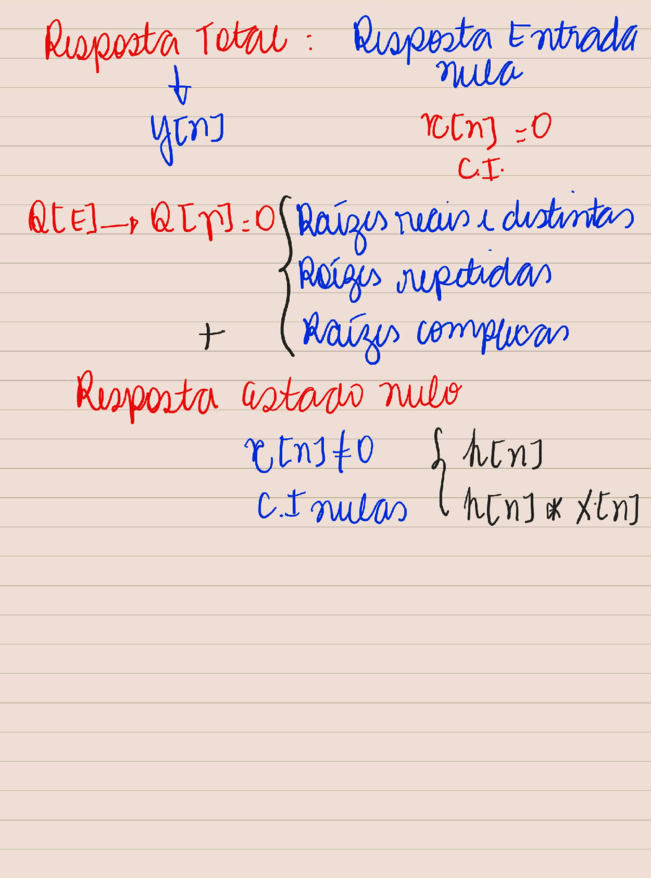 Resposta Total : Resposta Entrada
nula
y[n] x[n] = 0
C.I.
Q[E] → Q[γ] = 0 { Raízes reais e distintas
Raízes repetidas
+ Raízes complexas
Resposta estado nulo
x[n] ≠ 0 { h[n]
C.I nulas h[n] * x[n]